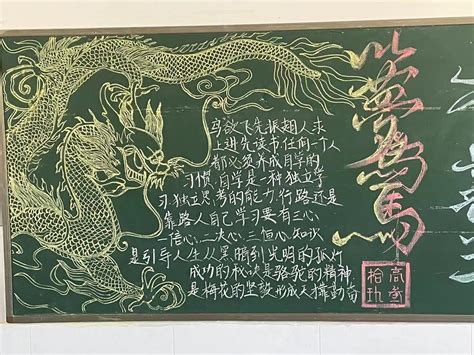 鸟欲飞先振翅人求
上进先读书任何一个人
都必须养成自学的
习惯自学是一种独立学
习独立思考的能力行路还是
靠路人自己学习要有三心
一信心二决心三恒心知识
是引导人生从黑暗到光明的孤灯
成功的秘诀是骆驼的精神
是梅花的坚毅形成天才靠勤奋
高
拾玖